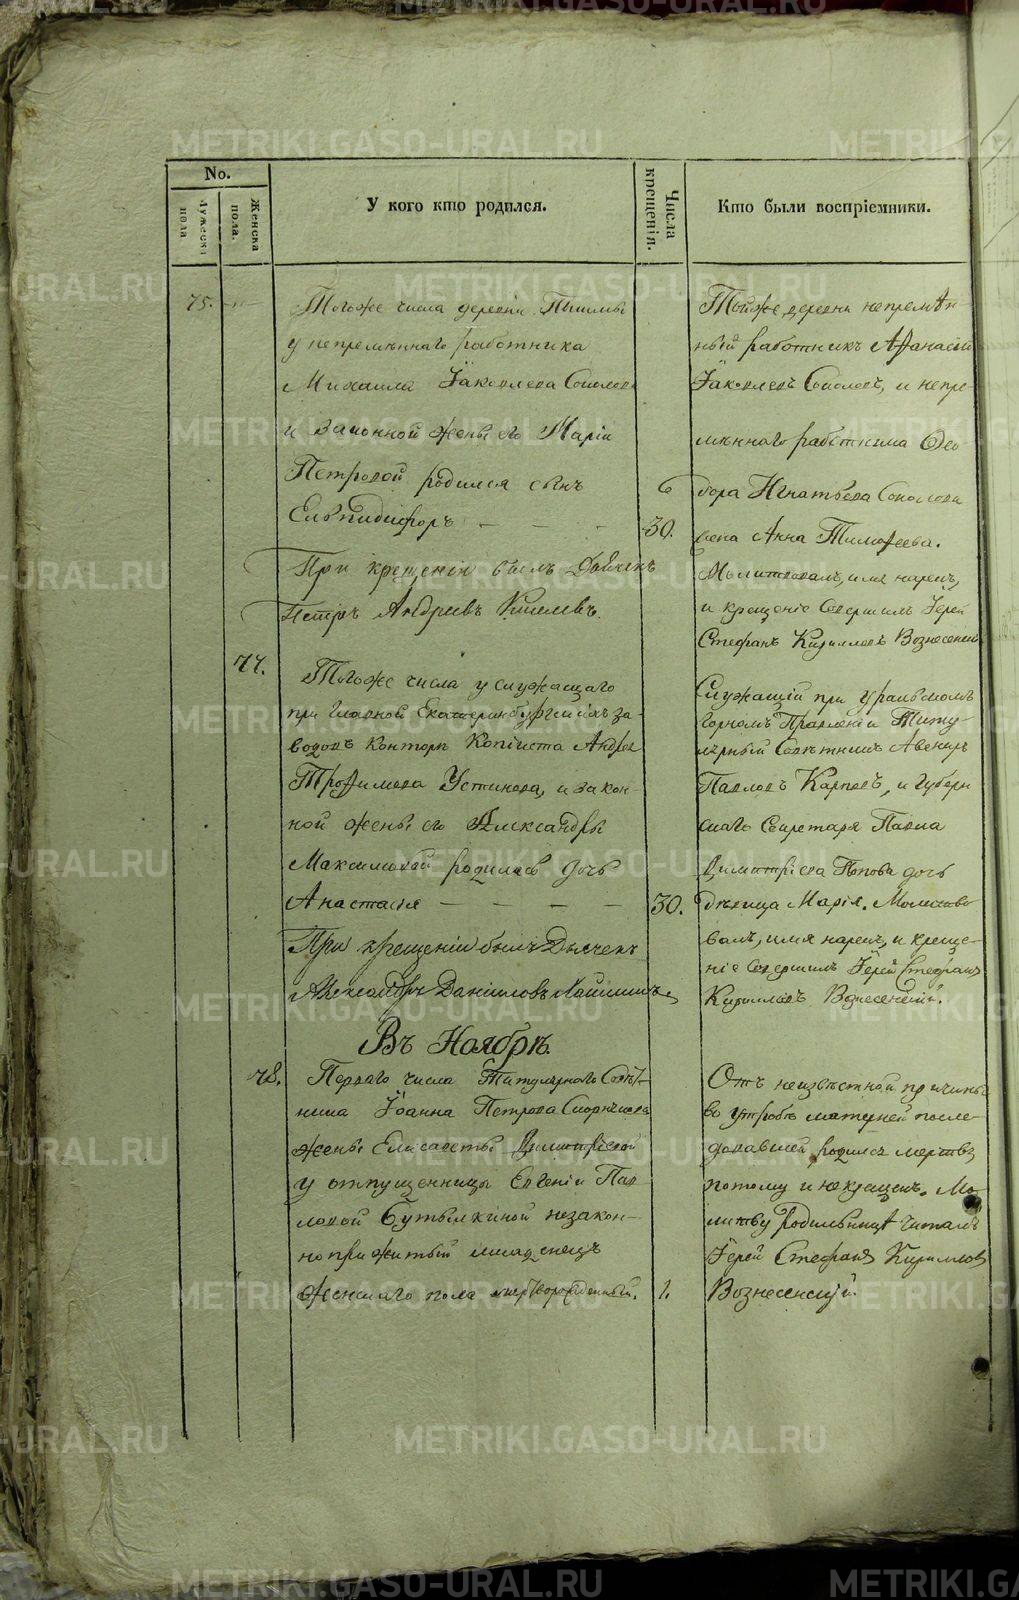 No.
Мужеска пола
Женска пола.
У кого кто родился.
Числа крещенія.
Кто были воспріемники.
75.
Тогоже числа деревни Пышмы
у непремѣннаго работника
Михаила Іаковлева Соколова
и законной жены его Маріи
Петровой родился сынъ
Елпидифоръ — — — 30.
При крещеніи былъ Дьячекъ
Петръ Андреевъ
Тойже деревни непремѣн-
ный работникъ Афанасій
Іаковлевъ Соколовъ, и непре-
мѣннаго работника Ѳео-
дора Игнатьева Соколова
жена Анна Тимофеева.
Молитвовалъ, имя нарекъ,
и крещеніе Совершилъ Іерей
Стефанъ Кирилловъ Вознесенскій
77.
Тогоже числа у служащаго
при Главной Екатеринбургскихъ за-
водовъ Конторѣ Копіиста Андрея
Трофимова Устинова, и закон-
ной жены его Александры
Максимовой родилась дочь
Анастасія — — — — 30.
При крещеніи былъ Дьячекъ
Александръ Даніиловъ
Служащій при Уральскомъ
Горномъ Правленіи Титу-
лярный Совѣтникъ Авениръ
Павловъ Карповъ, и Губерн
скаго Секретаря Павла
Димитріева Попова дочь
дѣвица Марія. Молитво-
валъ, имя нарекъ, и креще-
ніе Совершилъ Іерей Стефанъ
Кирилловъ Вознесенскій.
Въ Ноябрѣ.
78.
Перваго числа Титулярнаго Совѣт-
ника Іоанна Петрова
жены Елисаветы Димитріевой
у отпущенницы Евгеніи Пав-
ловой Бутылкиной незакон-
но прижитый младенецъ
женскаго пола мертворожденный. 1.
Отъ неизвѣстной причины
во утробѣ матерней послѣ-
довавшей, родился мертвъ
потому и некрещенъ. Мо-
литву родильницѣ читалъ
Іерей Стефанъ Кирилловъ
Вознесенскій.
METRIKI.GASO-URAL.RU